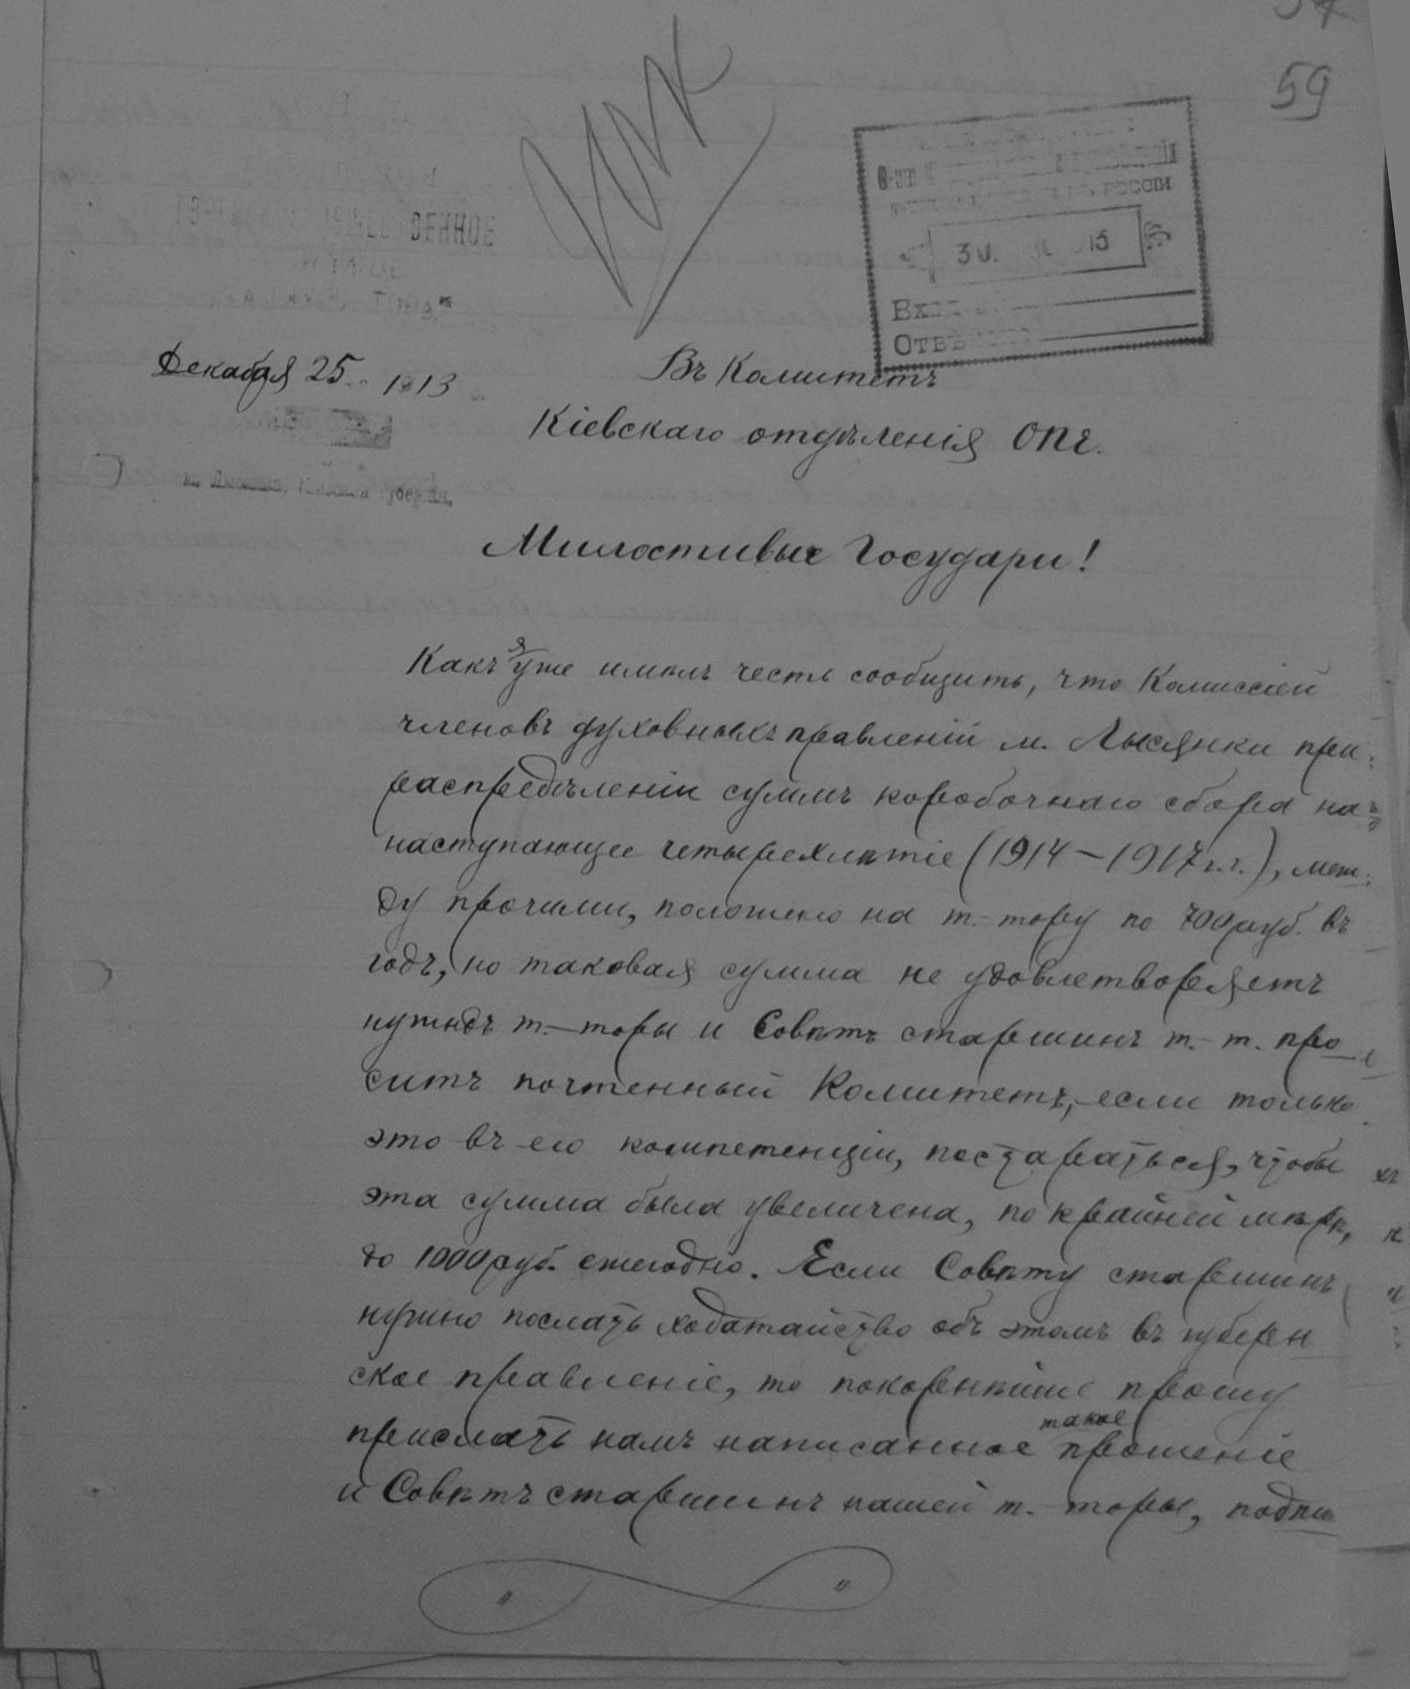 59
ЕВРЕЙСКОЕ ОБЩЕСТВЕННОЕ
Тора"
РОССІИ
30. 1913
Вход.
Отвѣчено
Декабря 25 1913
м. Лысянка, Кіевской губерніи.
Въ Комитетъ
Кіевскаго отдѣленія ОПЕ.
Милостивые Государи!
Какъ я уже имѣлъ честь сообщить, что Комиссіей
членовъ духовныхъ правленій м. Лысянки при
распредѣленіи суммъ коробочнаго сбора на
наступающее четырехлѣтіе (1914–1917 г.г.), меж-
ду прочими, положено на т.-тору по 700 руб. въ
годъ, но таковая сумма не удовлетворяетъ
нуждъ т.-торы и Совѣтъ старшинъ т.-т. про-
ситъ почтенный Комитетъ, если только
это въ его компетенціи, постараться, чтобы
эта сумма была увеличена, по крайней мѣрѣ,
до 1000 руб. ежегодно. Если Совѣту старшинъ
нужно послать ходатайство объ этомъ въ губерн
ское правленіе, то покорнѣйше прошу
прислать намъ написанное такое прошеніе
и Совѣтъ старшинъ нашей т.-торы, подпи